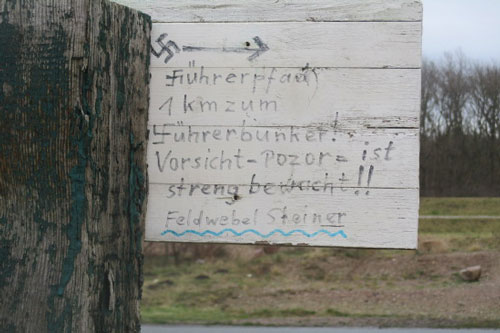 卐 →
Führerpfad
1 km zum
Führerbunker!
Vorsicht-Pozor= ist
streng bewacht!!
Feldwebel Steiner